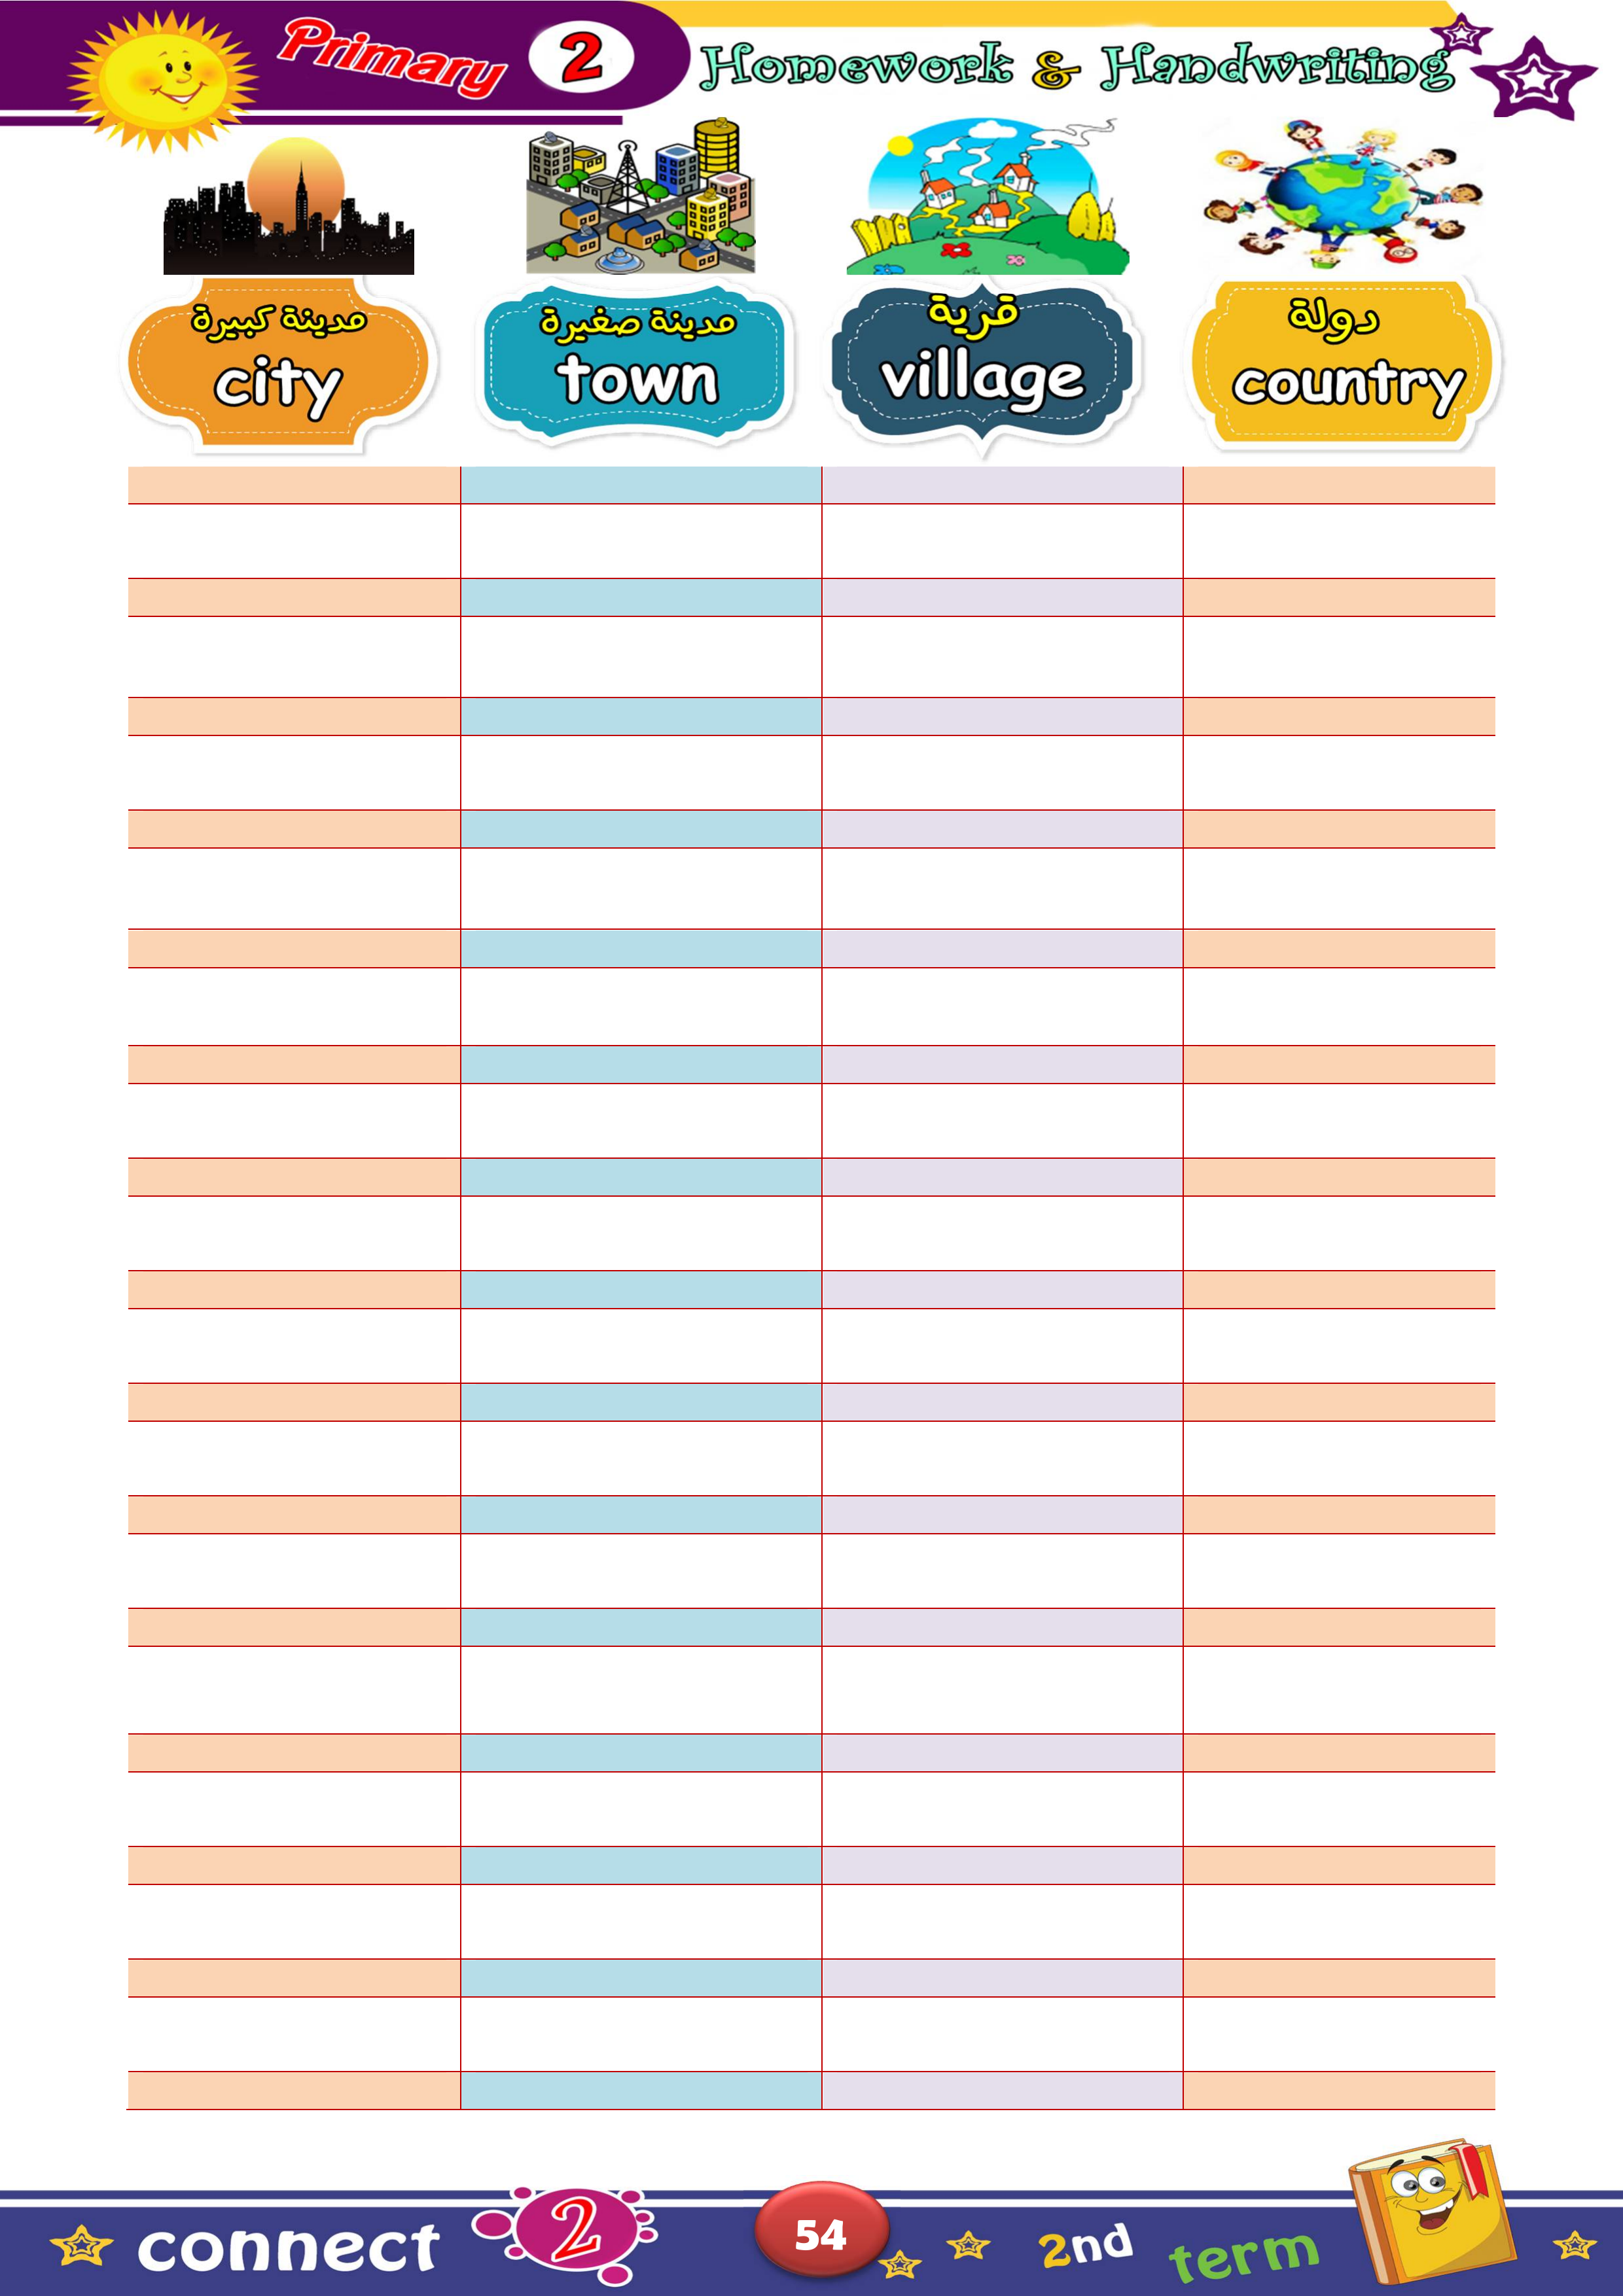 Primary 2 Homework & Handwriting
مدينة كبيرة
city
مدينة صغيرة
town
قرية
village
دولة
country
connect 2 54 2nd term